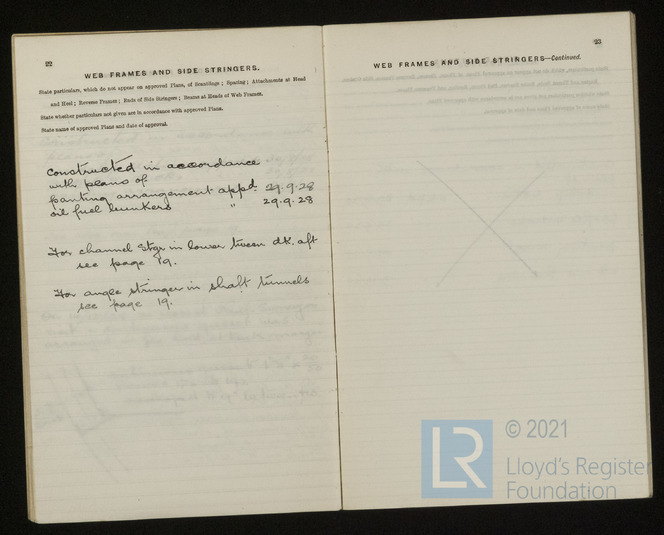 22
WEB FRAMES AND SIDE STRINGERS.
State particulars, which do not appear on approved Plans, of Scantlings ; Spacing ; Attachments at Head
and Heel ; Reverse Frames ; Ends of Side Stringers ; Beams at Heads of Web Frames.
State whether particulars not given are in accordance with approved Plans.
State name of approved Plans and date of approval.
Constructed in accordance
with plans of
panting arrangement appd. 29.9.28
oil fuel bunkers " 29.9.28
For channel Stgr in lower tween dk. aft
see page 19.
For angle stringer in shaft tunnels
see page 19.
23
WEB FRAMES AND SIDE STRINGERS—Continued.
LR
© 2021
Lloyd's Register
Foundation